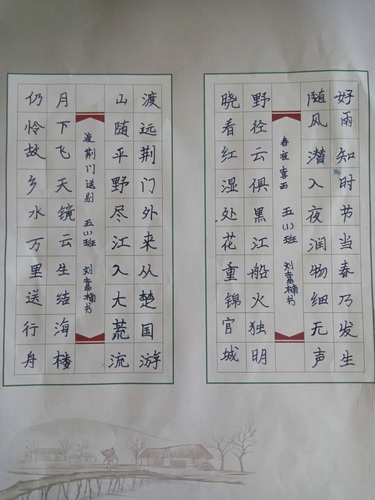 好雨知时节当春乃发生
随风潜入夜润物细无声
春夜喜雨 五(1)班 刘富楠书
野径云俱黑江船火独明
晓看红湿处花重锦官城
渡远荆门外来从楚国游
山随平野尽江入大荒流
渡荆门送别 五(1)班 刘富楠书
月下飞天镜云生结海楼
仍怜故乡水万里送行舟